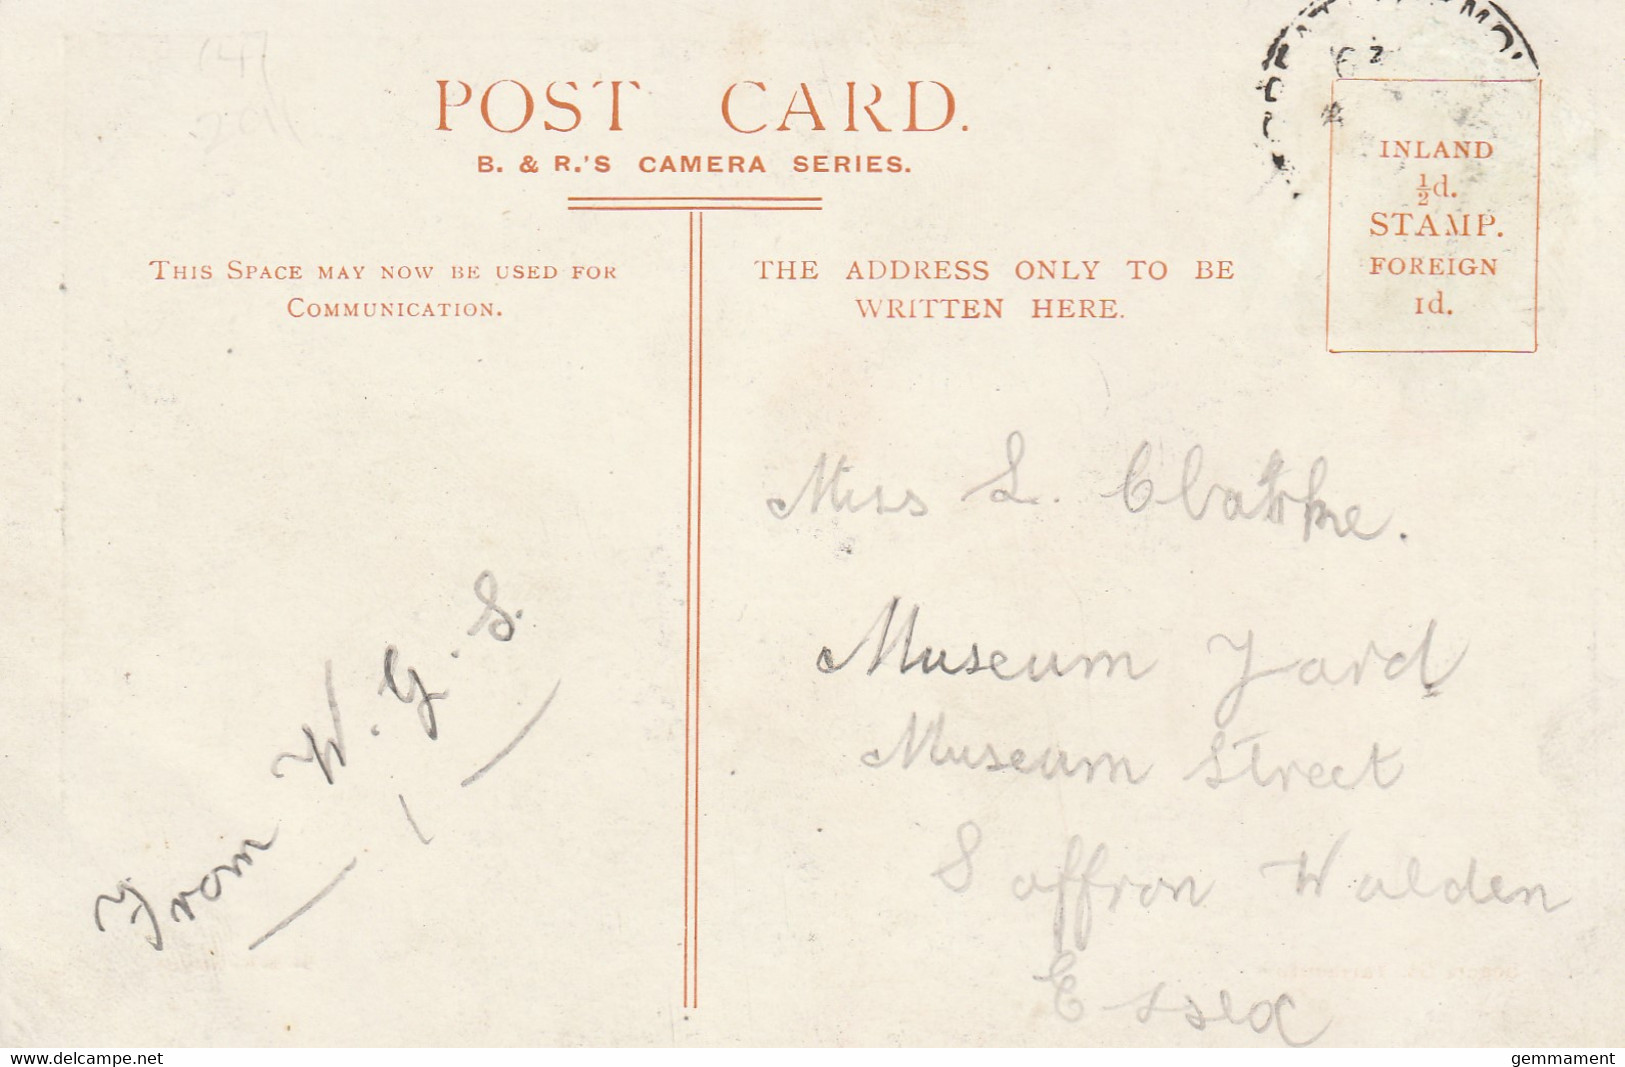 POST CARD.
B. & R.'S CAMERA SERIES.
THIS SPACE MAY NOW BE USED FOR
COMMUNICATION.
THE ADDRESS ONLY TO BE
WRITTEN HERE.
INLAND
½d.
STAMP.
FOREIGN
1d.
From W. G. S.
Miss L.
Museum Yard
Museum Street
Saffron Walden
Essex
www.delcampe.net
gemmament